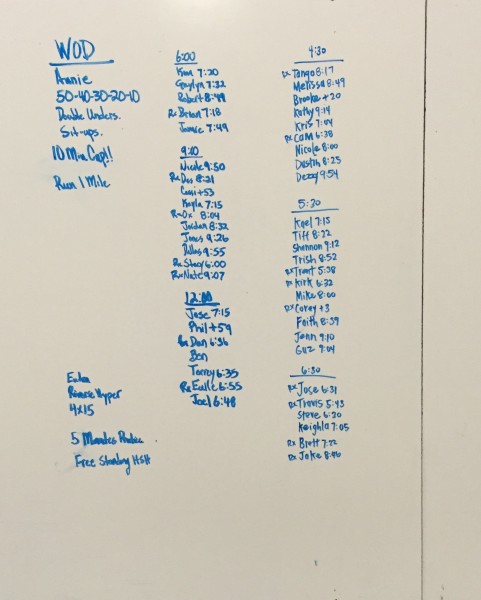 WOD
Annie
50-40-30-20-10
Double Unders.
Sit-ups.
10 Min Cap!!
Run 1 Mile
Reverse Hyper
4x15
5 Minutes
Free Standing HSH
6:00
Kim 7:20
7:32
Robert 8:49
Rx Brian 7:18
Jamie 7:49
9:10
Nicole 9:50
Rx Dos 8:21
+53
Kayla 7:15
Rx Ox 8:04
Jordan 8:32
Jones 9:26
Dallas 9:55
Rx Stacy 6:00
Rx Nate 9:07
12:00
Jose 7:15
Phil +59
Rx Dan 6:36
Ben
Torrey 6:35
Rx 6:55
Joel 6:48
4:30
Rx Tango 8:17
Melissa 8:49
Brooke +20
Kathy 9:14
Kris 7:04
Rx CAM 6:38
Nicole 8:00
Dustin 8:25
Dezzy 9:54
5:30
Kael 7:15
Tiff 8:22
Shannon 9:12
Trish 8:52
Rx Trent 5:28
Rx Kirk 6:32
Mike 8:00
Rx Corey +3
Faith 8:39
Jenn 9:10
Guz 9:04
6:30
Rx Jose 6:31
Rx Travis 5:43
Steve 6:20
Keighla 7:05
Rx Brett 7:22
Rx Jake 8:46